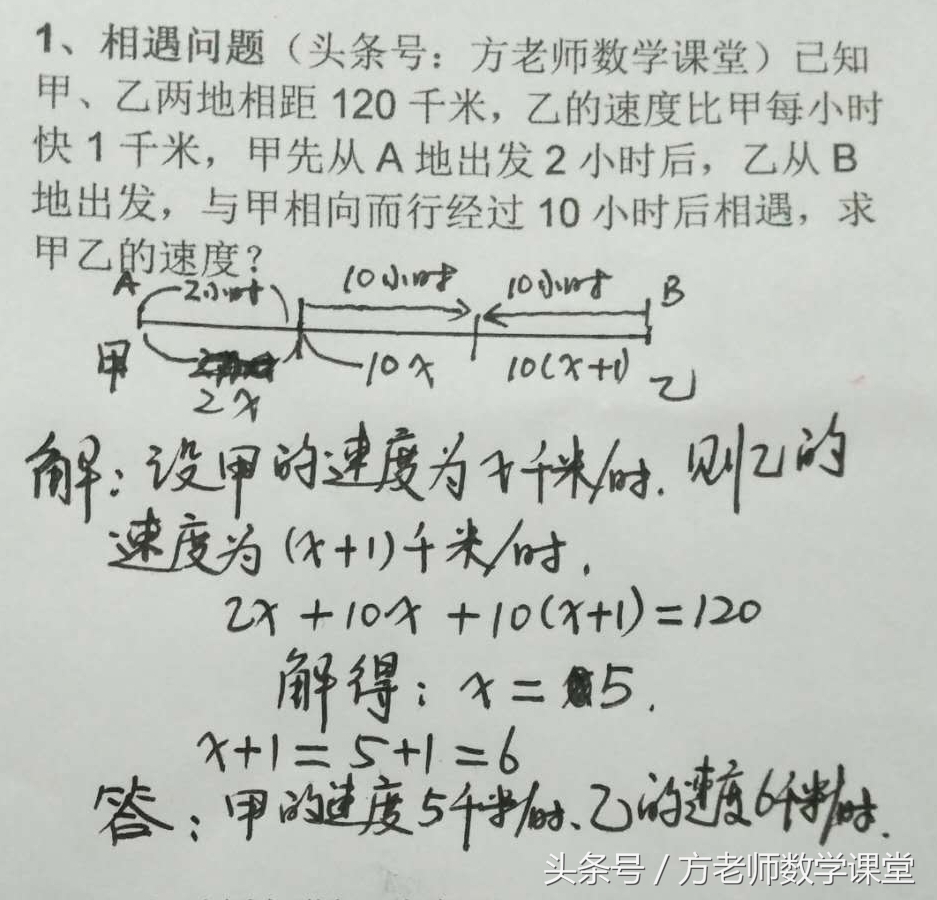 1、相遇问题（头条号：方老师数学课堂）已知
甲、乙两地相距 120 千米，乙的速度比甲每小时
快 1 千米，甲先从 A 地出发 2 小时后，乙从 B
地出发，与甲相向而行经过 10 小时后相遇，求
甲乙的速度？
A 2小时 10小时 10小时 B
甲 10x 10(x+1) 乙
2x
解：设甲的速度为x千米/时. 则乙的
速度为(x+1)千米/时.
2x+10x+10(x+1)=120
解得：x=5.
x+1=5+1=6
答：甲的速度5千米/时、乙的速度6千米/时.
头条号 / 方老师数学课堂